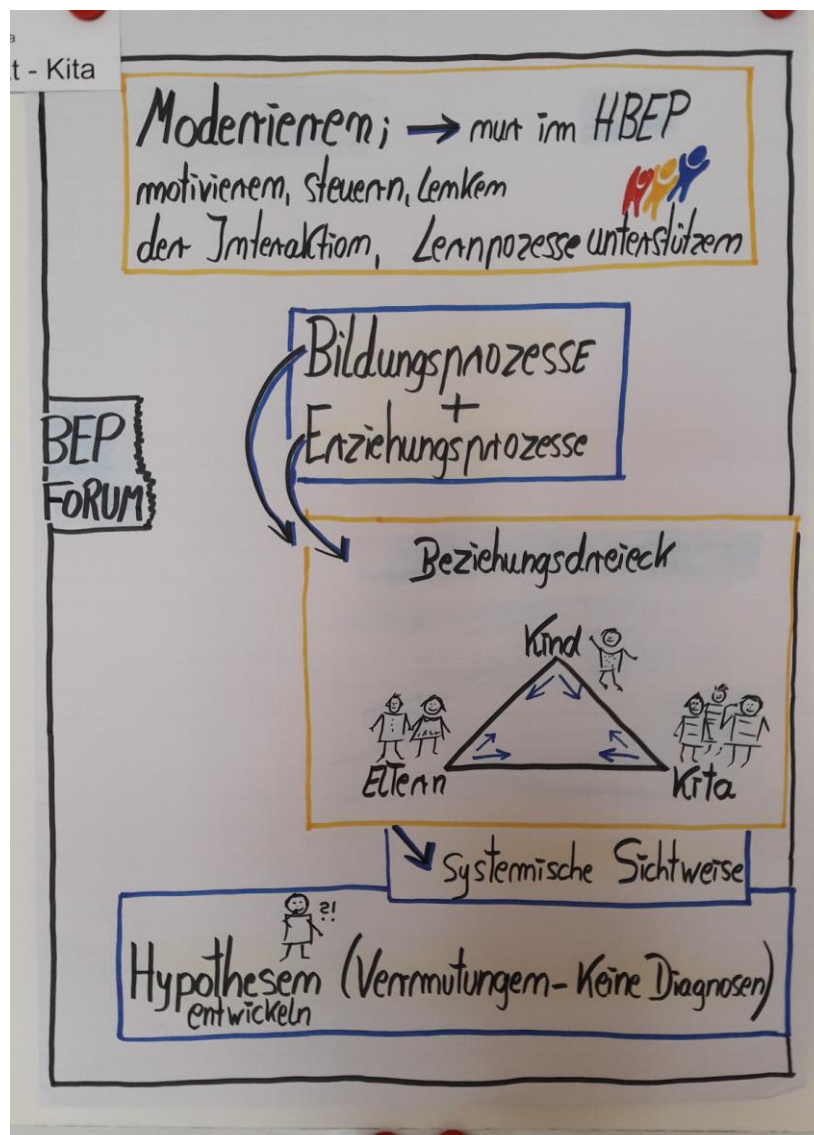 a
t - Kita
Moderieren; → nur im HBEP
motivieren, steuern, Lenken
der Interaktion, Lernpozesse unterstützen
Bildungsprozesse
+
Erziehungsprozesse
BEP
FORUM
Beziehungsdreieck
Kind
Eltern
Kita
Systemische Sichtweise
?!
Hypothesen (Vermutungen - Keine Diagnosen)
entwickeln